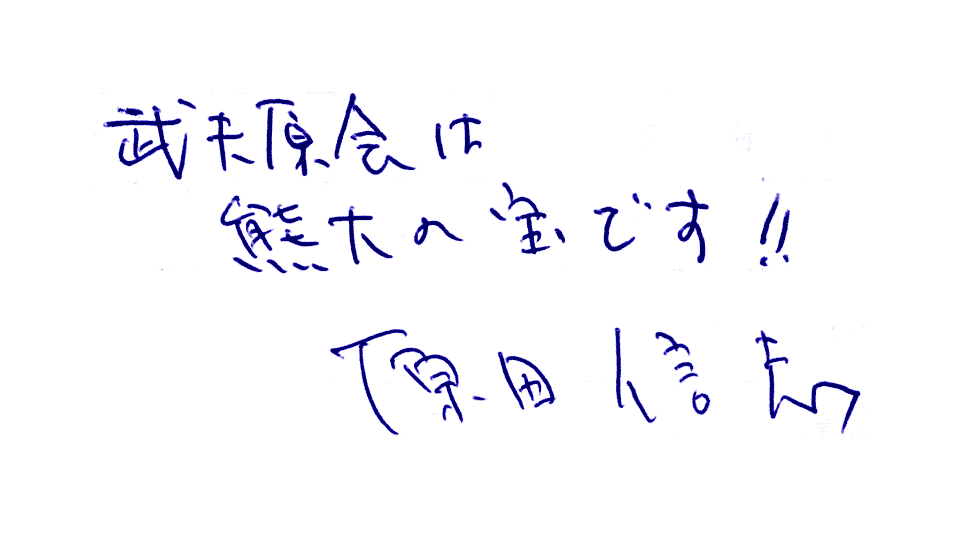 武夫原会は
熊大の宝です!!
原田信志